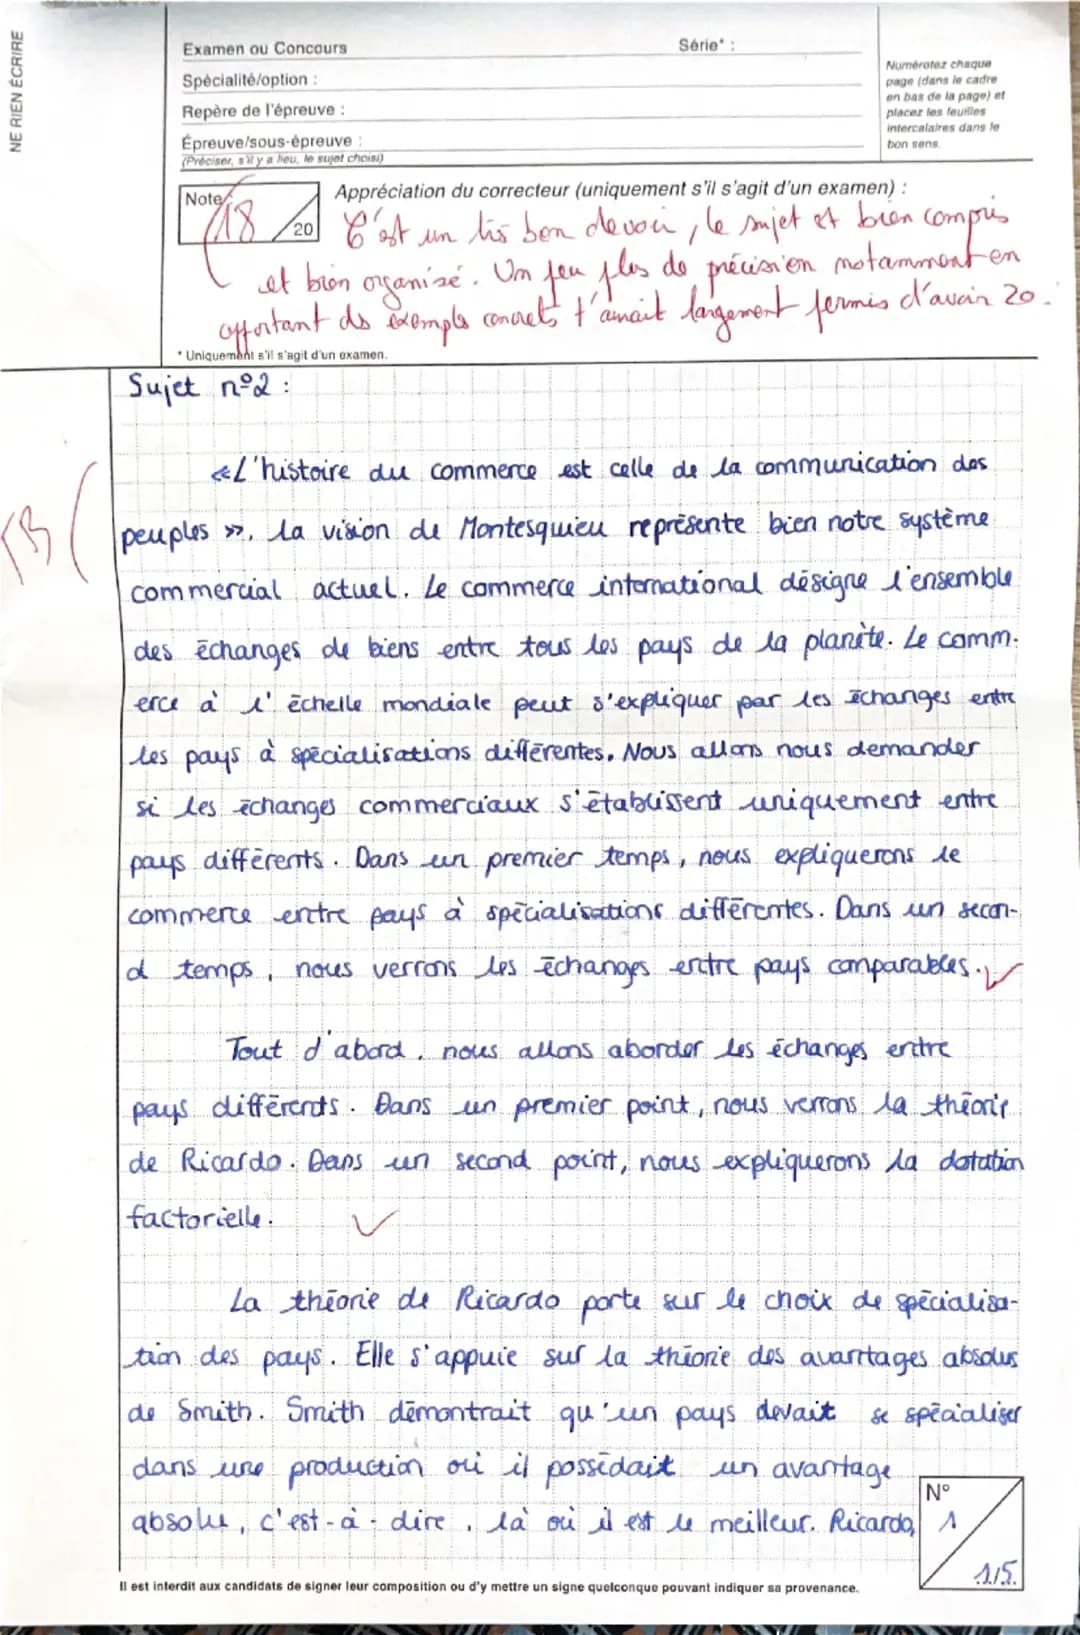 NE RIEN ÉCRIRE
Examen ou Concours
Série* :
Spécialité/option :
Repère de l'épreuve :
Épreuve/sous-épreuve :
(Préciser, s'il y a lieu, le sujet choisi)
Numérotez chaque
page (dans le cadre
en bas de la page) et
placez les feuilles
intercalaires dans le
bon sens.
Note
18
20
Appréciation du correcteur (uniquement s'il s'agit d'un examen) :
C'est un très bon devoir, le sujet et bien compris
et bien organisé. Un peu plus de précision notamment en
apportant ds exemple concrets t'aurait largement permis d'avoir 20.
* Uniquement s'il s'agit d'un examen.
Sujet n°2 :
TB
« L'histoire du commerce est celle de la communication des
peuples », la vision de Montesquieu représente bien notre système
commercial actuel. Le commerce international désigne l'ensemble
des échanges de biens entre tous les pays de la planète. Le comm-
erce à l'échelle mondiale peut s'expliquer par les échanges entre
les pays à spécialisations différentes. Nous allons nous demander
si les échanges commerciaux s'établissent uniquement entre
pays différents. Dans un premier temps, nous expliquerons le
commerce entre pays à spécialisations différentes. Dans un secon-
d temps, nous verrons les échanges entre pays comparables.
Tout d'abord, nous allons aborder les échanges entre
pays différents. Dans un premier point, nous verrons la théorie
de Ricardo. Dans un second point, nous expliquerons la dotation
factorielle.
La théorie de Ricardo porte sur le choix de spécialisa-
tion des pays. Elle s'appuie sur la théorie des avantages absolus
de Smith. Smith démontrait qu'un pays devait se spécialiser
dans une production où il possédait un avantage
absolu, c'est-à-dire, là où il est le meilleur. Ricardo,
N°
1
1/5.
Il est interdit aux candidats de signer leur composition ou d'y mettre un signe quelconque pouvant indiquer sa provenance.